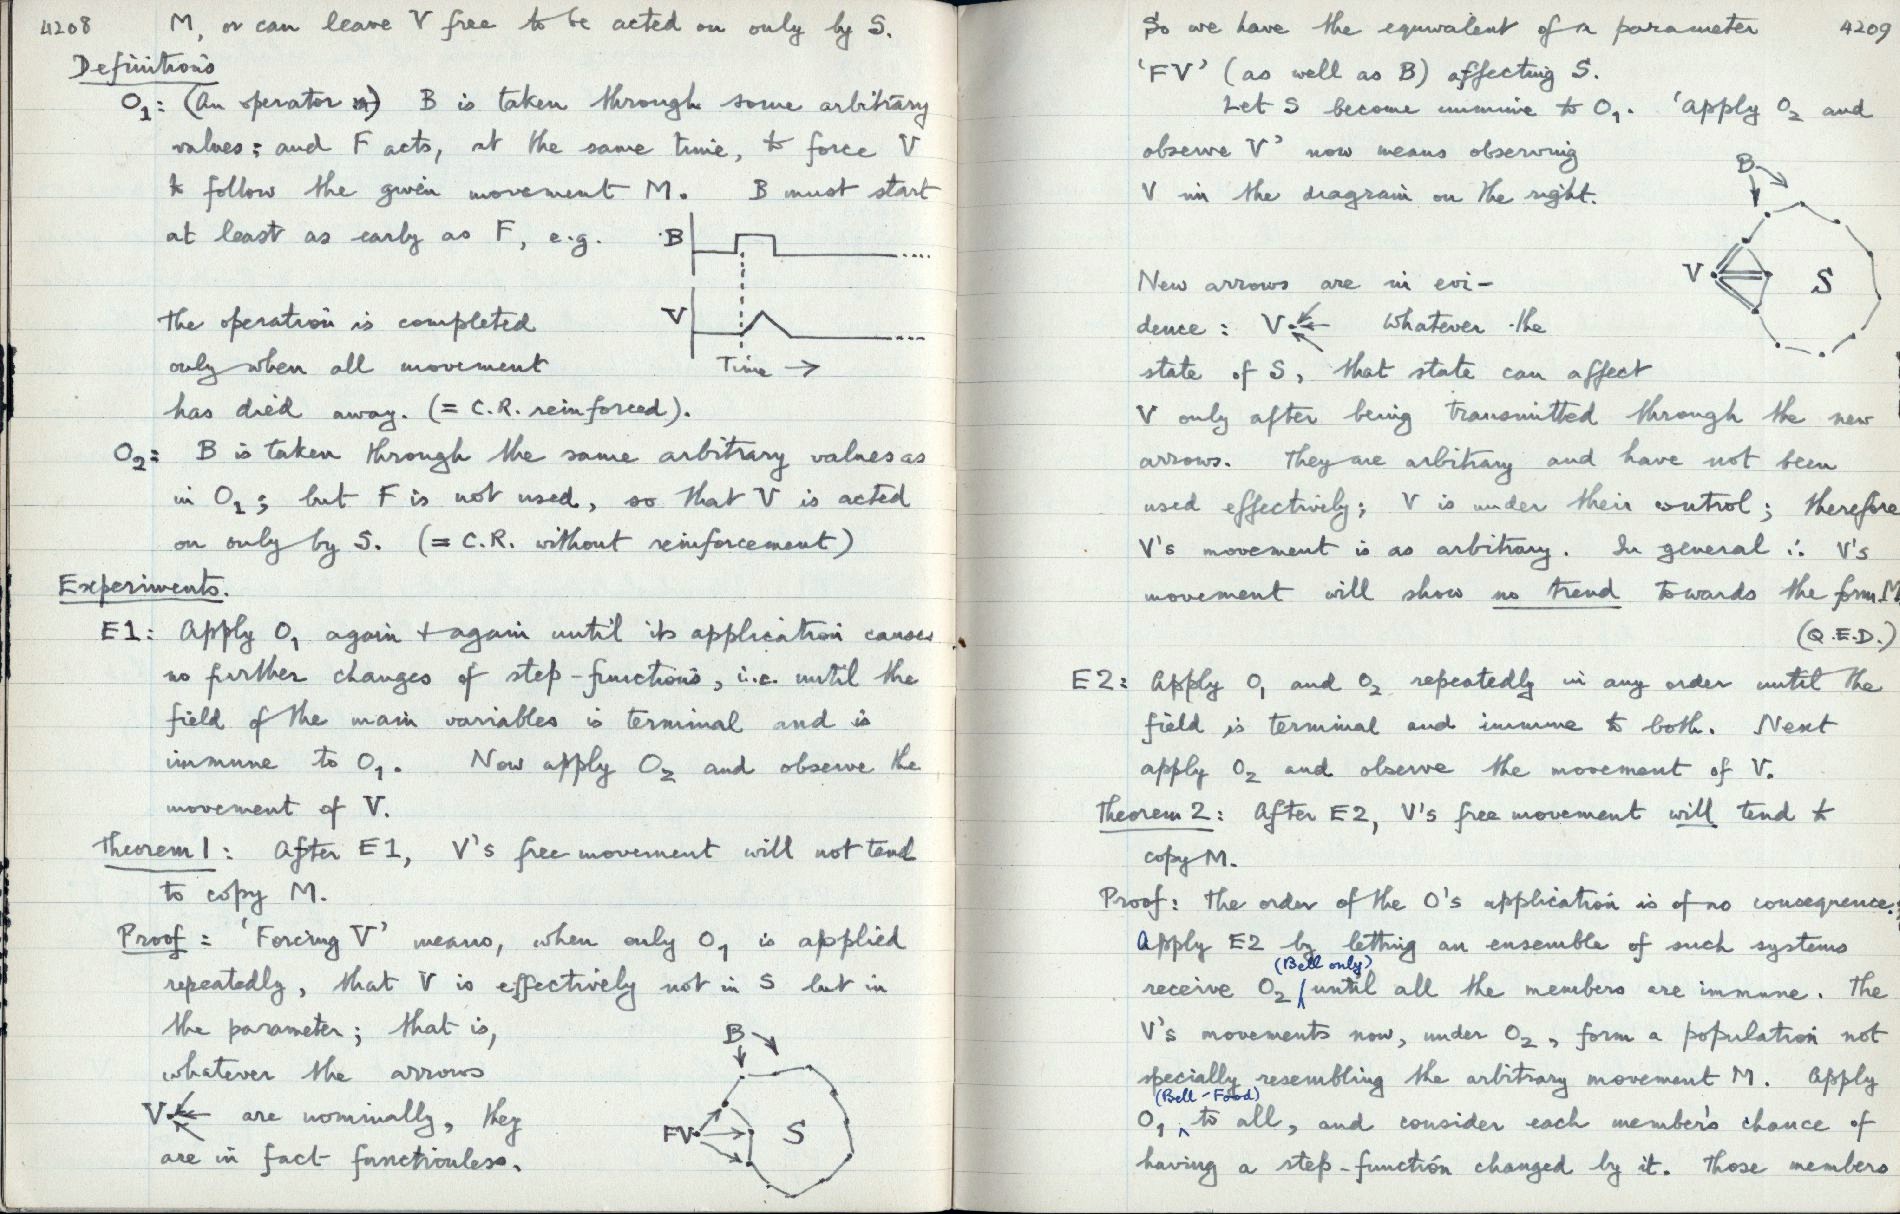 4208
M, or can leave V free to be acted on only by S.
Definitions
O1: (An operator) B is taken through some arbitrary
values; and F acts, at the same time, to force V
to follow the given movement M. B must start
at least as early as F, e.g.
B
....
The operation is completed
V
....
only when all movement
Time →
has died away. (= C.R. reinforced).
O2: B is taken through the same arbitrary values as
in O1; but F is not used, so that V is acted
on only by S. (= C.R. without reinforcement)
Experiments.
E1: Apply O1 again + again until its application causes
no further changes of step-functions, i.e. until the
field of the main variables is terminal and is
immune to O1. Now apply O2 and observe the
movement of V.
Theorem 1: After E1, V's free movement will not tend
to copy M.
Proof: 'Forcing V' means, when only O1 is applied
repeatedly, that V is effectively not in S but in
the parameter; that is,
whatever the arrows
V are nominally, they
are in fact functionless.
B
FV
S
4209
So we have the equivalent of a parameter
'FV' (as well as B) affecting S.
Let S become immune to O1. 'Apply O2 and
observe V' now means observing
V in the diagram on the right.
B
V
S
New arrows are in evi-
dence: V Whatever the
state of S, that state can affect
V only after being transmitted through the new
arrows. They are arbitrary and have not been
used effectively; V is under their control; therefore
V's movement is as arbitrary. In general ∴ V's
movement will show no trend towards the form M
(Q.E.D.)
E2: Apply O1 and O2 repeatedly in any order until the
field is terminal and immune to both. Next
apply O2 and observe the movement of V.
Theorem 2: After E2, V's free movement will tend to
copy M.
Proof: The order of the O's application is of no consequence.
Apply E2 by letting an ensemble of such systems
(Bell only)
receive O2 until all the members are immune. The
V's movements now, under O2, form a population not
specially resembling the arbitrary movement M. Apply
(Bell-Food)
O1 to all, and consider each member's chance of
having a step-function changed by it. Those members